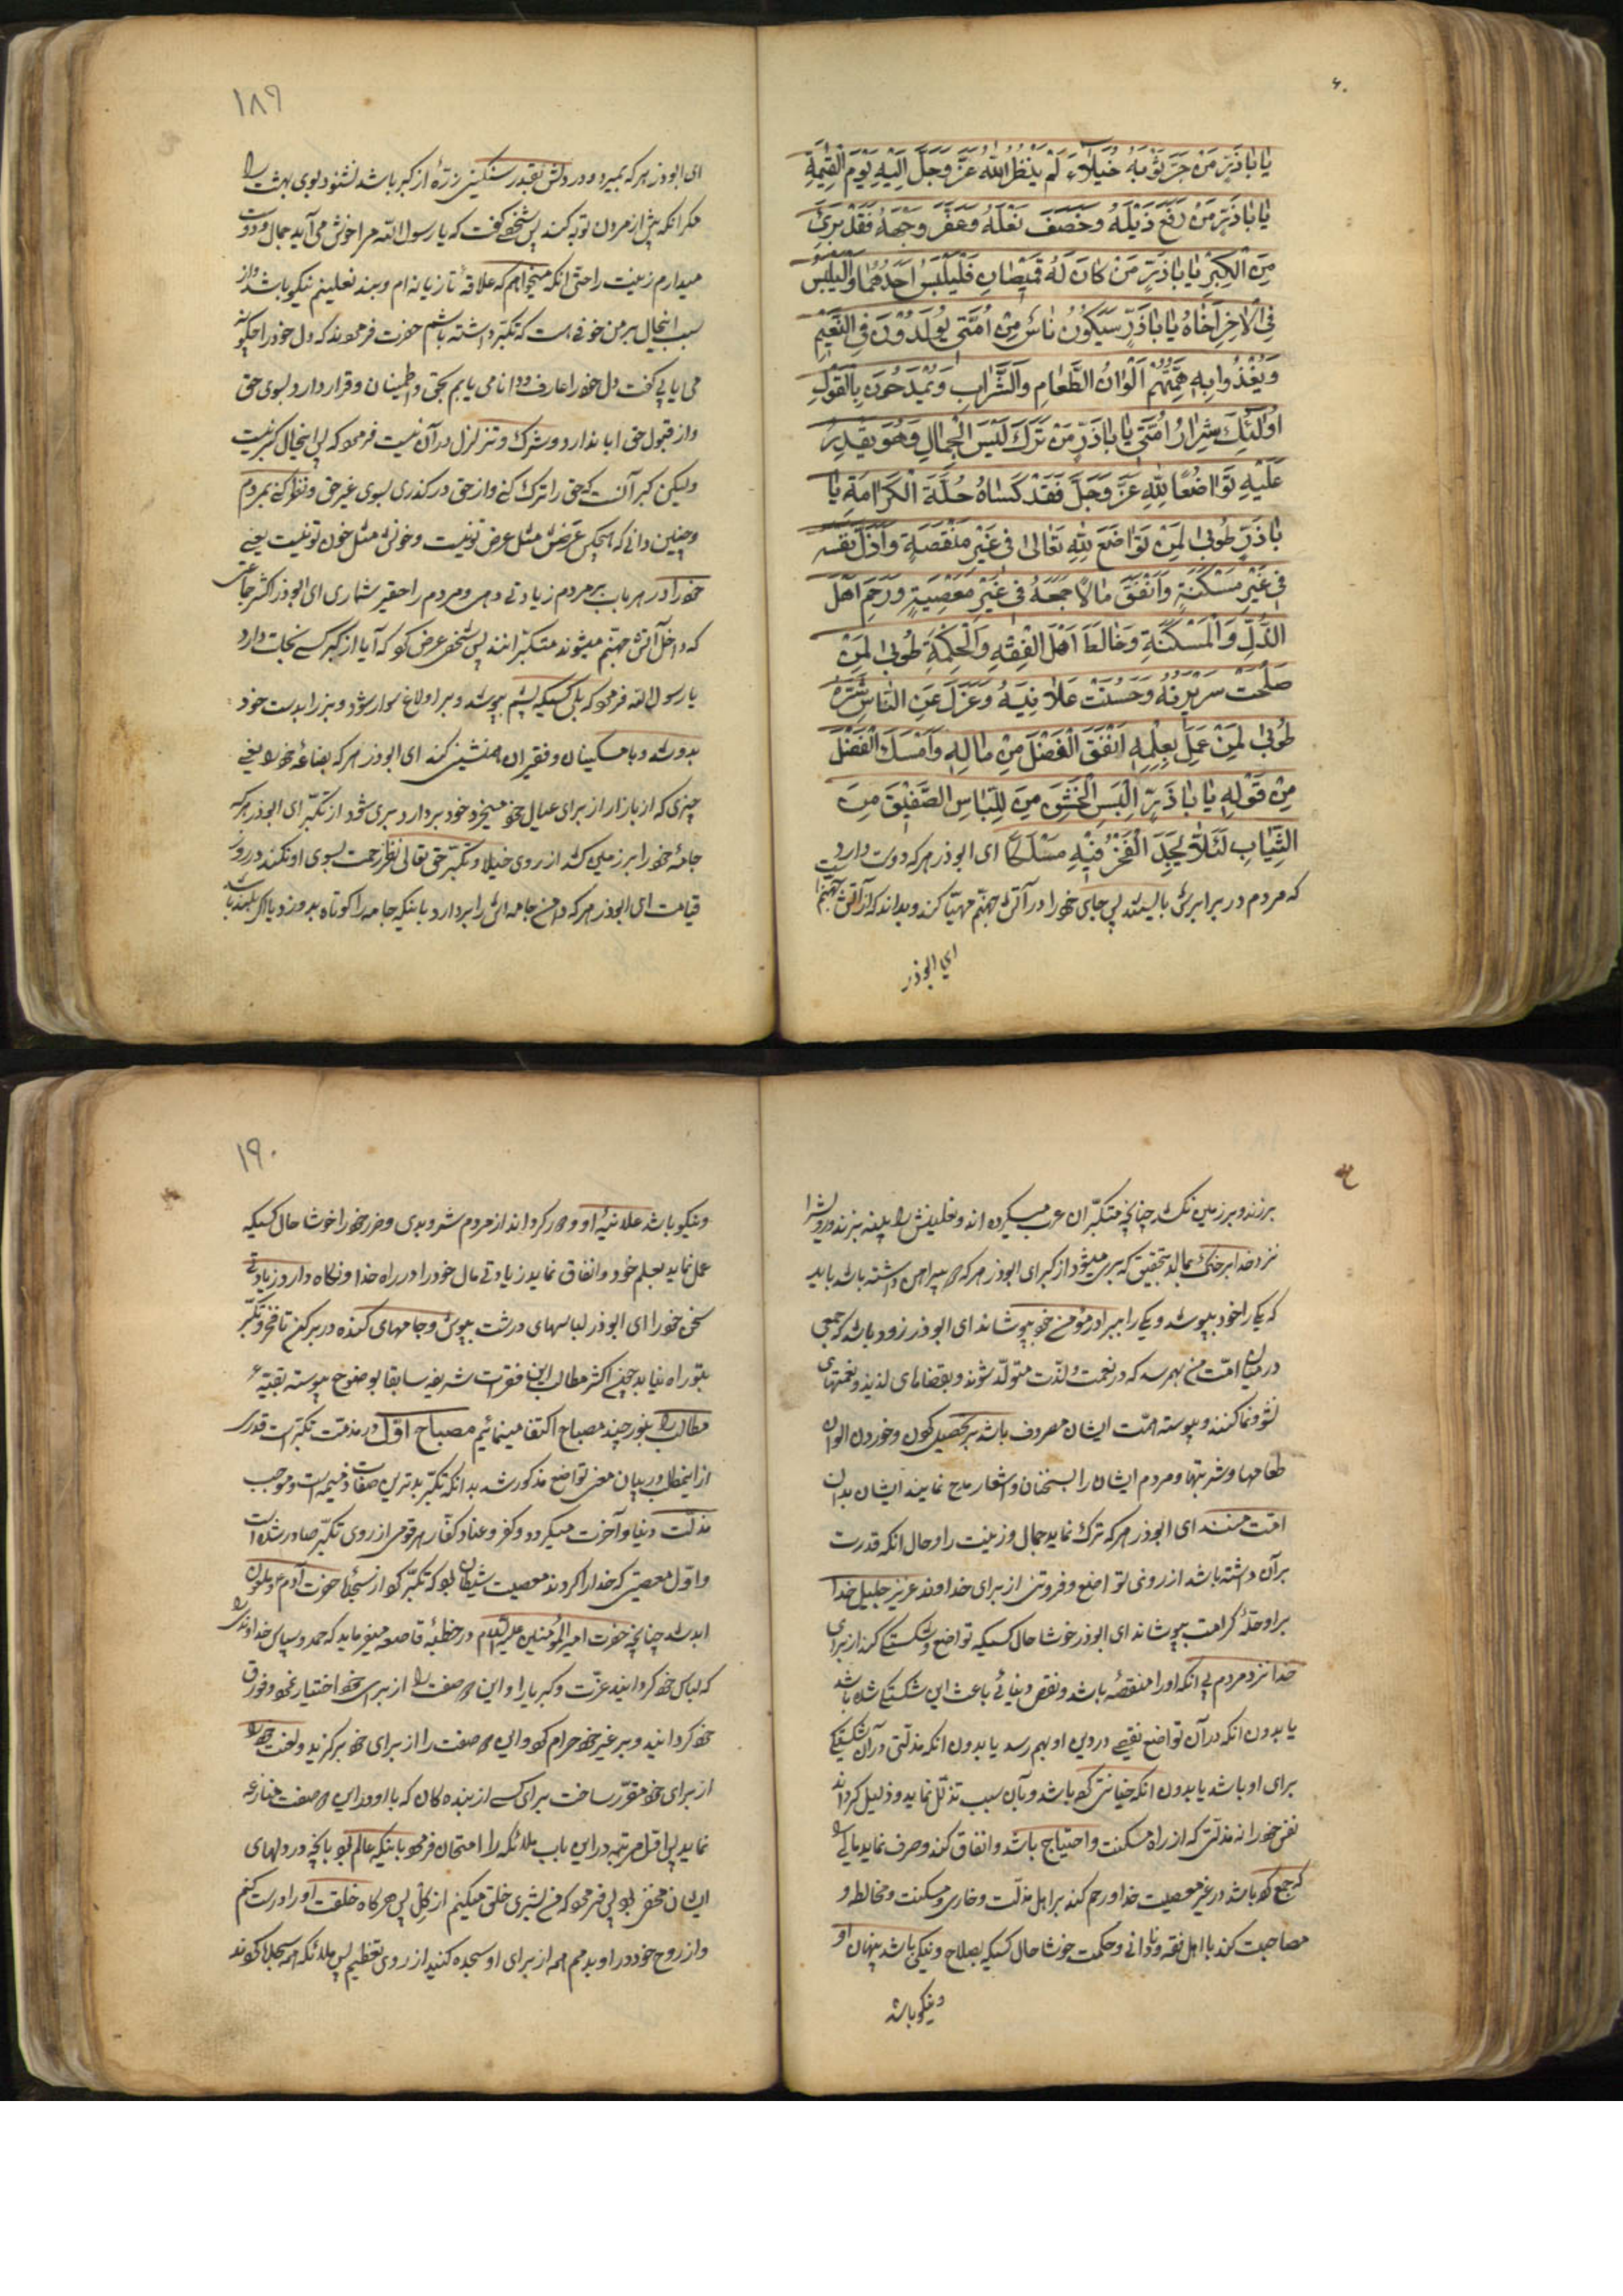 ۶۰
یا باذَرٍّ مَنْ جَرَّ ثَوْبَهُ خُیَلاءَ لَمْ یَنْظُرِ اللّٰهُ عَزَّ وَجَلَّ اِلَیْهِ یَوْمَ الْقِیٰمَةِ
یا باذَرٍّ مَنْ رَفَعَ ذَیْلَهُ وَخَصَفَ نَعْلَهُ وَعَفَّرَ وَجْهَهُ فَقَدْ بَرِئَ
مِنَ الْکِبْرِ یا باذَرٍّ مَنْ کانَ لَهُ قَمیصانِ فَلْیَلْبَسْ اَحَدَهُما وَلْیُلْبِسْ
فِی الْاٰخِرِ اَخاهُ یا باذَرٍّ سَیَکُونُ ناسٌ مِنْ اُمَّتی یُولَدُونَ فِی النَّعیمِ
وَیُغْذَوْا بِهِ هِمَّتُهُمْ اَلْوانُ الطَّعامِ وَالشَّرابِ وَیُمْدَحُونَ بِالْقَوْلِ
اُولٰئِکَ شِرارُ اُمَّتی یا باذَرٍّ مَنْ تَرَکَ لُبْسَ الْجَمالِ وَهُوَ یَقْدِرُ
عَلَیْهِ تَواضُعًا لِلّٰهِ عَزَّ وَجَلَّ فَقَدْ کَساهُ حُلَّةَ الْکَرامَةِ یا
باذَرٍّ طُوبیٰ لِمَنْ تَواضَعَ لِلّٰهِ تَعالیٰ فی غَیْرِ مَنْقَصَةٍ وَاَذَلَّ نَفْسَهُ
فی غَیْرِ مَسْکَنَةٍ وَاَنْفَقَ مالًا جَمَعَهُ فی غَیْرِ مَعْصِیَةٍ وَرَحِمَ اَهْلَ
الذُّلِّ وَالْمَسْکَنَةِ وَخالَطَ اَهْلَ الْفِقْهِ وَالْحِکْمَةِ طُوبیٰ لِمَنْ
صَلُحَتْ سَریرَتُهُ وَحَسُنَتْ عَلانِیَتُهُ وَعَزَلَ عَنِ النّاسِ شَرَّهُ
طُوبیٰ لِمَنْ عَمِلَ بِعِلْمِهِ اَنْفَقَ الْفَضْلَ مِنْ مالِهِ وَاَمْسَکَ الْفَضْلَ
مِنْ قَوْلِهِ یا باذَرٍّ اِلْبَسِ الْخَشِنَ مِنَ اللِّباسِ الصَّفیقَ مِنَ
الثِّیابِ لِئَلّا یَجِدَ الْفَخْرُ فیْهِ مَسْلَکًا ای ابوذر هر که دوست دارد
که مردم در برابرش بایستند پس جای خود را در آتش جهنم مهیّا کند و بداند که از آتش جهنم است
ای ابوذر
۱۸۹
ای ابوذر هر که بمیرد و در دلش بقدر سنکینی ذرّهٔ از کبر باشد نشنود بوی بهشت را
مکر انکه پیش از مردن توبه کند پس شخصے کفت که یا رسول اللّه مرا خوش می آید جمال و دوست
میدارم زینت را حتی انکه میخواهم که علاقهٔ تازیانه ام و بند نعلینم نیکو باشد و از
سبب اینحال بر من خوفی هست که تکبّر داشته باشم حضرت فرمودند که دل خود را چکونه
می یابی کفت دل خود را عارف و دانا می یابم بحق و اطمینان و قرار دارد بسوی حق
و از قبول حق ابا ندارد و شک و تزلزل در آن نیست فرمود که پس اینحال کبر نیست
ولیکن کبر آنست که حق را ترک کنی و از حق در کذری بسوی غیر حق و نظر کنی بمردم
و چنین دانی که هیچکس عرضش مثل عرض تو نیست و خونش مثل خون تو نیست یعنی
خود را در هر باب بر مردم زیادتی دهی و مردم را حقیر شماری ای ابوذر اکثر جماعتی
که داخل آتش جهنّم میشوند متکبّرانند پس شخصی عرض کرد که آیا از کبر کسی نجات دارد
یا رسول اللّه فرمود که بلی کسیکه پشم بپوشد و بر اولاغ سوار شود و بز را بدست خود
بدوشد و با مسکینان و فقیران همنشینی کند ای ابوذر هر که بضاعهٔ خود را یعنی
چیزی که از بازار از برای عیال خود میخرد خود بردارد بری شود از تکبّر ای ابوذر هر که
جامهٔ خود را بر زمین کشد از روی خیلا و تکبّر حق تعالی نظر رحمت بسوی او نکند در روز
قیامت ای ابوذر هر که دامن جامه اش را بردارد یا بنکه جامه را کوتاه بدوزد یا اکر بلند باشد
بر زند و بر زمین نکشد چنانچه متکبّران عرب میکرده اند و نعلینش را پینه بزند و رویش را
نزد خدا بر خاک بمالد بتحقیق که بری میشود از کبر ای ابوذر هر که دو پیراهن داشته باشد باید
که یکی را خود بپوشد و یکی را ببرادر مؤمن خود بپوشاند ای ابوذر زود باشد که جمعی
در میان امّت من بهم رسد که در نعمت و لذّت متولّد شوند و بغذاهای لذیذ و نعمتهای
نشو و نما کنند و پیوسته همّت ایشان مصروف باشد بر تحصیل کردن و خوردن الوان
طعامها و شربتها و مردم ایشان را بسخنان و اشعار مدح نمایند ایشان بدان
امّت منند ای ابوذر هر که ترک نماید جمال و زینت را و حال انکه قدرت
بر آن داشته باشد از روی تواضع و فروتنی از برای خداوند عزیز جلیل خدا
بر او حلّهٔ کرامت بپوشاند ای ابوذر خوشا حال کسیکه تواضع و شکستکی کند از برای
خدا نزد مردم بی انکه او را منقصه باشد و نقص دنیائی باعث این شکستکی شده باشد
یا بدون انکه در آن تواضع نقصی در دین او بهم رسد یا بدون انکه مذلّتی در آن شکستکی
برای او باشد یا بدون انکه خیانتی کرده باشد و بآن سبب تذلّل نماید و ذلیل کرداند
نفس خود را نه مذلّتی که از راه مسکنت و احتیاج باشد و انفاق کند و صرف نماید مالی را
که جمع کرده باشد در غیر معصیت خدا و رحم کند بر اهل مذلّت و خاری و مسکنت و مخالطه و
مصاحبت کند با اهل فقه و دانائی و حکمت خوشا حال کسیکه بصلاح و نیکی باشد پنهان او
و نیکو باشد
۱۹۰
و نیکو باشد علانیهٔ او و دور کرداند از مردم شر و بدی و ضرر خود را خوشا حال کسیکه
عمل نماید بعلم خود و انفاق نماید زیادتی مال خود را در راه خدا و نکاه دارد زیادتی
سخن خود را ای ابوذر لباسهای درشت بپوش و جامهای کنده در بر کن تا فخر و تکبّر
بتو راه نیابد چون اکثر مطالب این فقرات شریفه سابقا بوضوح پیوسته بقیّهٔ
مطالب را بنور چند مصباح اکتفا مینمائیم مصباح اوّل در مذمّت تکبّر است قدری
از اینمطلب در بیان معنی تواضع مذکور شد بدانکه تکبّر بدترین صفات ذمیمه است و موجب
مذلّت دنیا و آخرت میکردد و کفر و عناد کفّار هر قومی از روی تکبّر صادر شده است
و اوّل معصیتی که خدا را کردند معصیت شیطان بود که تکبّر کرد از سجدهٔ حضرت آدم و ملعون
ابد شد چنانچه حضرت امیر المؤمنین علیه السلام در خطبهٔ قاصعه میفرماید که حمد و سپاس خداوندی را
که لباس خود کردانید عزّت و کبریا را و این دو صفت را از برای خود اختیار نمود و قورق
خود کردانید و بر غیر خود حرام کرد و این دو صفت را از برای خود برکزید و لعنت خود را
از برای خود مقرّر ساخت برای کسی از بنده کان که با او در این دو صفت منازعه
نماید پس اوّل مرتبه در این باب ملائکه را امتحان فرمود با ینکه عالم بود بانچه در دلهای
ایشان مخفی بود پس فرمود که من بشری خلق میکنم از کِل پس هرکاه خلقت او را درست کنم
و از روح خود در او بدمم همه از برای او سجده کنید از روی تعظیم پس ملائکه همه سجده کردند